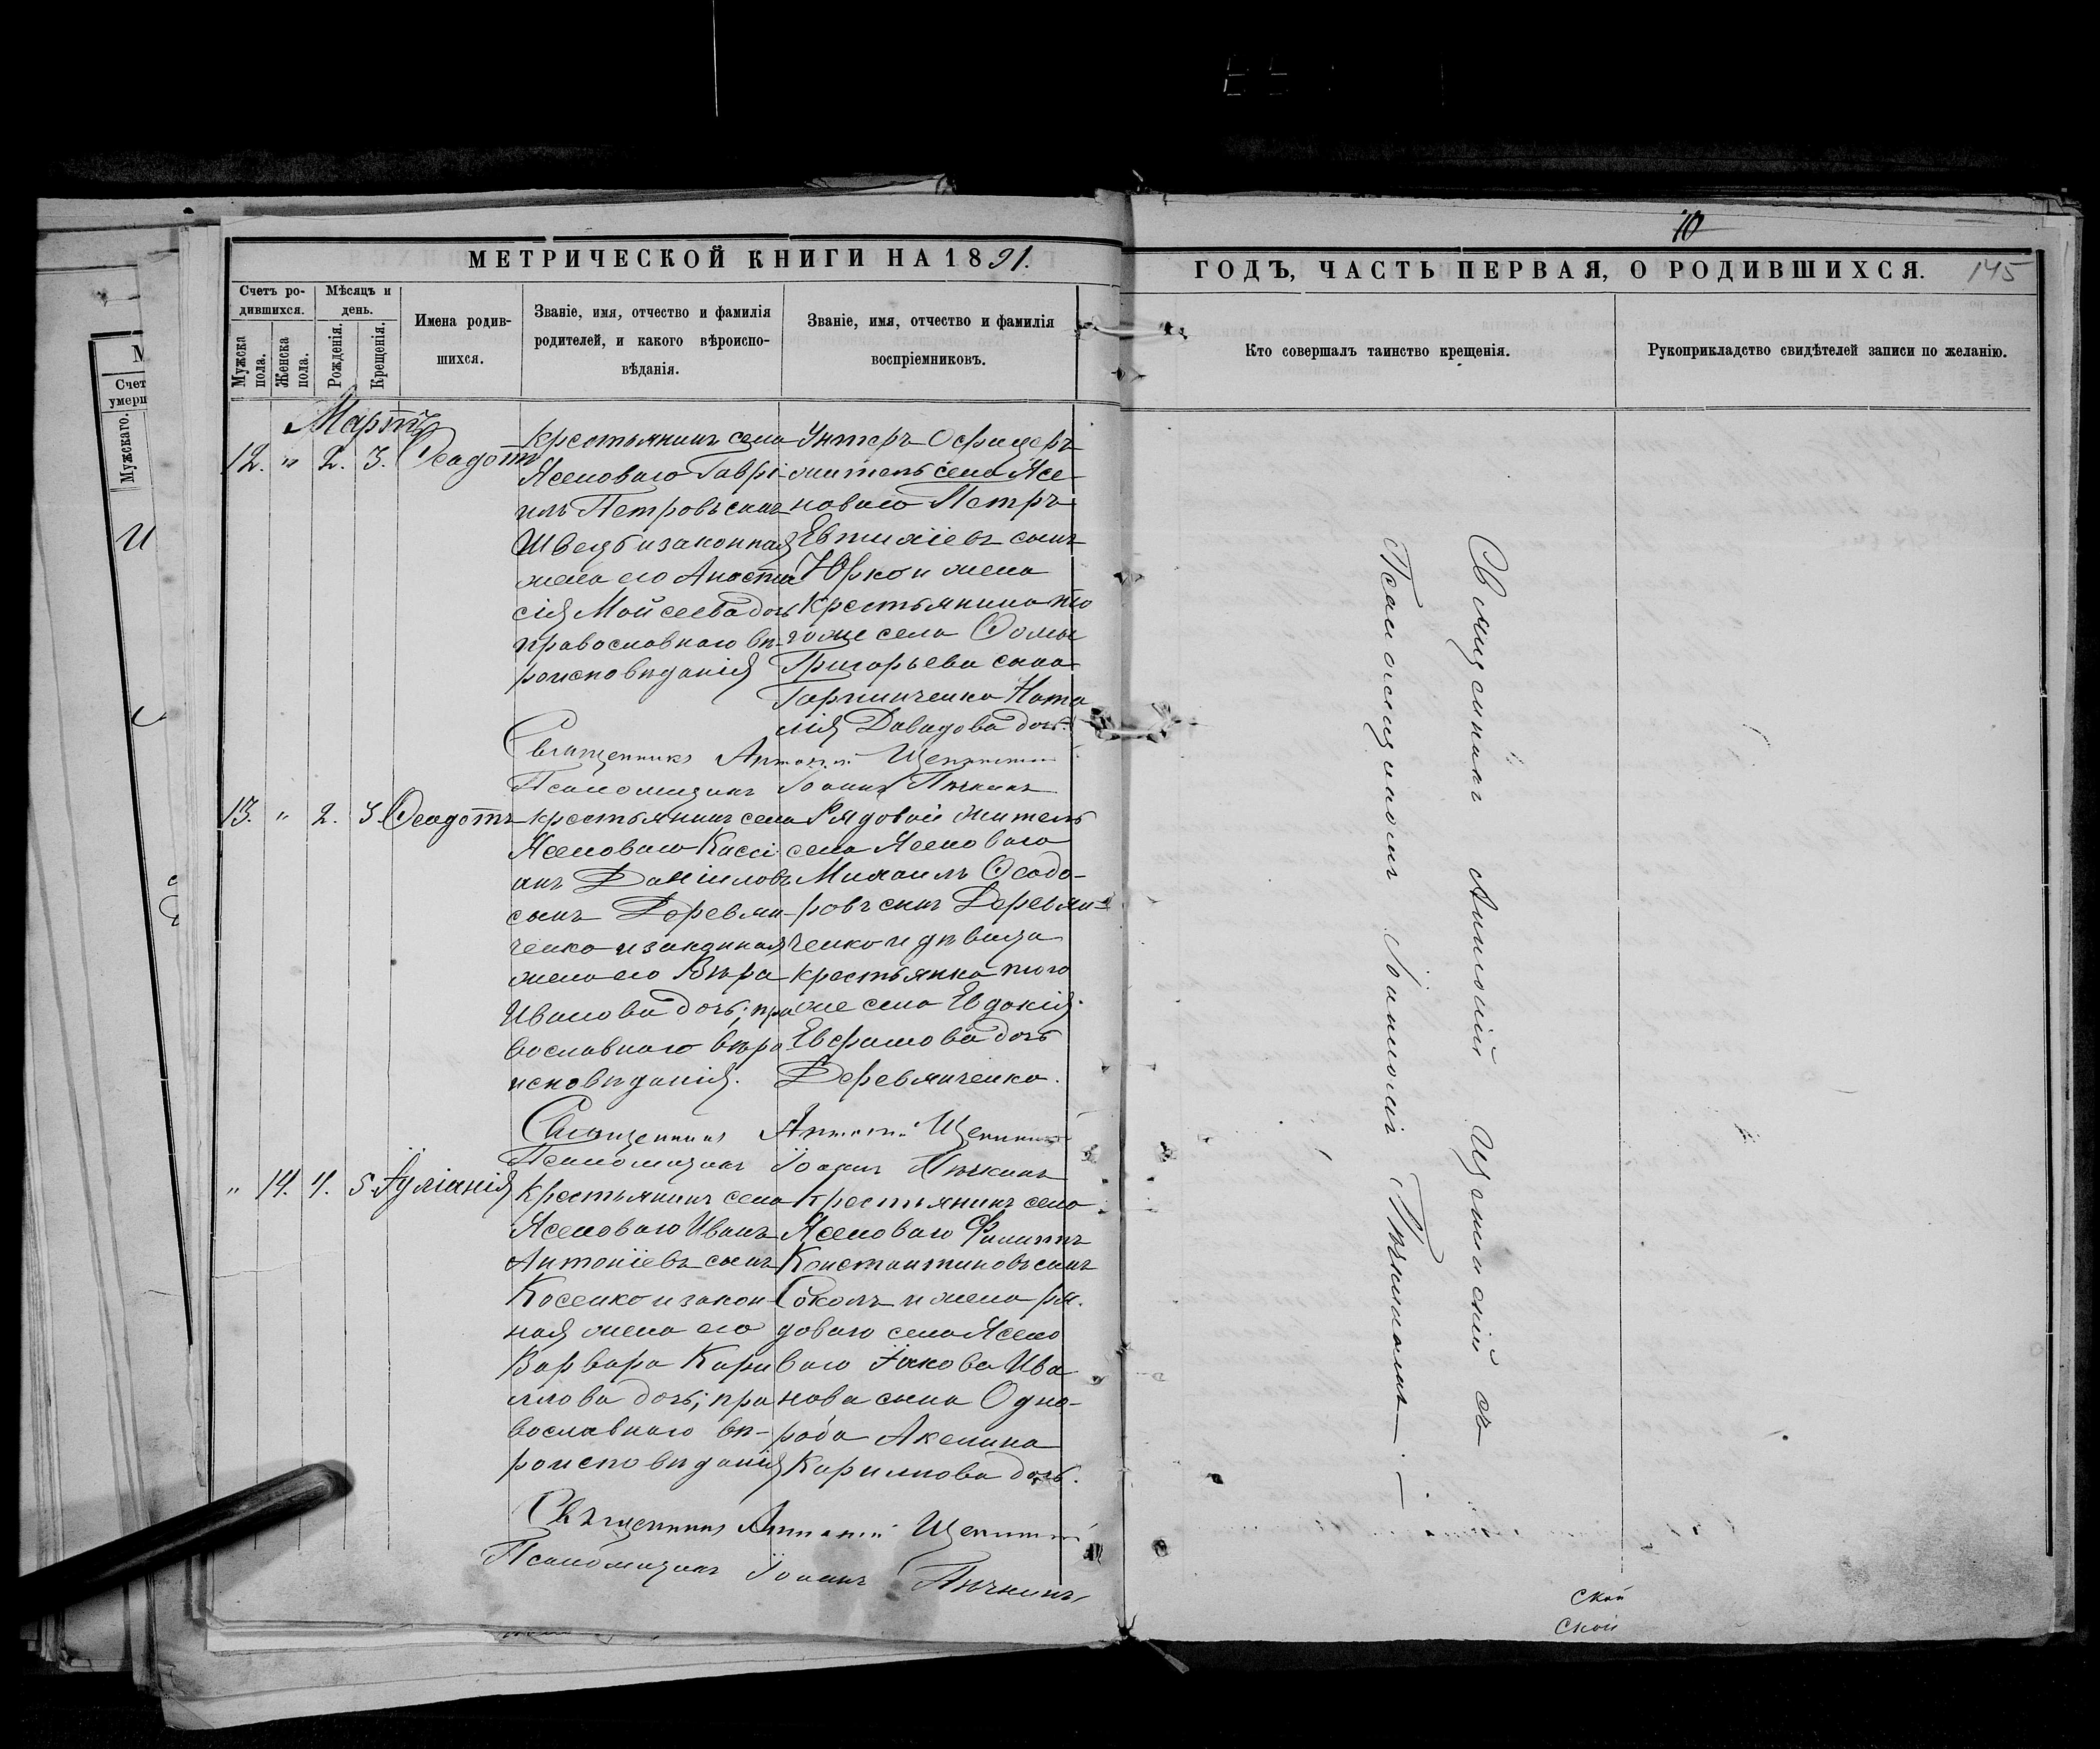 10
МЕТРИЧЕСКОЙ КНИГИ НА 1891.
ГОДЪ, ЧАСТЬ ПЕРВАЯ, О РОДИВШИХСЯ. 145
Счетъ ро-
дившихся.
Мужска
пола.
Женска
пола.
Мѣсяцъ и
день.
Рожденія.
Крещенія.
Имена родив-
шихся.
Званіе, имя, отчество и фамилія
родителей, и какого вѣроиспо-
вѣданія.
Званіе, имя, отчество и фамилія
воспріемниковъ.
Кто совершалъ таинство крещенія.
Рукоприкладство свидѣтелей записи по желанію.
Счет
умерш
Мужскаго.
Мартъ
12. " 2. 3. Ѳеодотъ
Крестьянинъ села
Ясеноваго Гаврі-
илъ Петровъ сынъ
Швецъ и законная
жена его Анаста
сія Мойсеева дочь
православнаго вѣ-
роисповѣданія
Унтеръ Офицеръ
житель села Ясе-
новаго Петръ
Евтихіевъ сынъ
Юрко и жена
крестьянина то
гоже села Ѳомы
Григорьева сына
Ната
лія Давидова дочь.
Священникъ Антоній
Псаломщикъ Іоаннъ Пѣчкинъ
13. " 2. 3. Ѳеодотъ
крестьянинъ села
Ясеноваго Кассі
анъ Даніиловъ
сынъ Деревян-
ченко и законная
жена его Вѣра
Иванова дочь; пра
вославнаго вѣро
исповѣданія.
Рядовой житель
села Ясеноваго
Михаилъ Ѳеодо-
ровъ сынъ Деревян-
ченко и дѣвица
крестьянка того
же села Евдокія
дочь
Деревянченко.
Священникъ Антоній
Псаломщикъ Іоаннъ Пѣчкинъ
" 14. 4. 5. Іуліанія
Крестьянинъ села
Ясеноваго Иванъ
Антоніевъ сынъ
Косенко и закон
ная жена его
Варвара Кири
ллова дочь; пра
вославнаго вѣ-
роисповѣданія
Крестьянинъ села
Ясеноваго Филиппъ
Константиновъ сынъ
Соколъ и жена ря-
доваго села Ясено
ваго Іакова Ива
нова сына Одно-
рода Акелина
Кириллова дочь.
Священникъ Антоній
Псаломщикъ Іоаннъ Пѣчкинъ
Священникъ Антоній съ
Псаломщикомъ Іоанномъ Пѣчкинымъ.
ской
ской